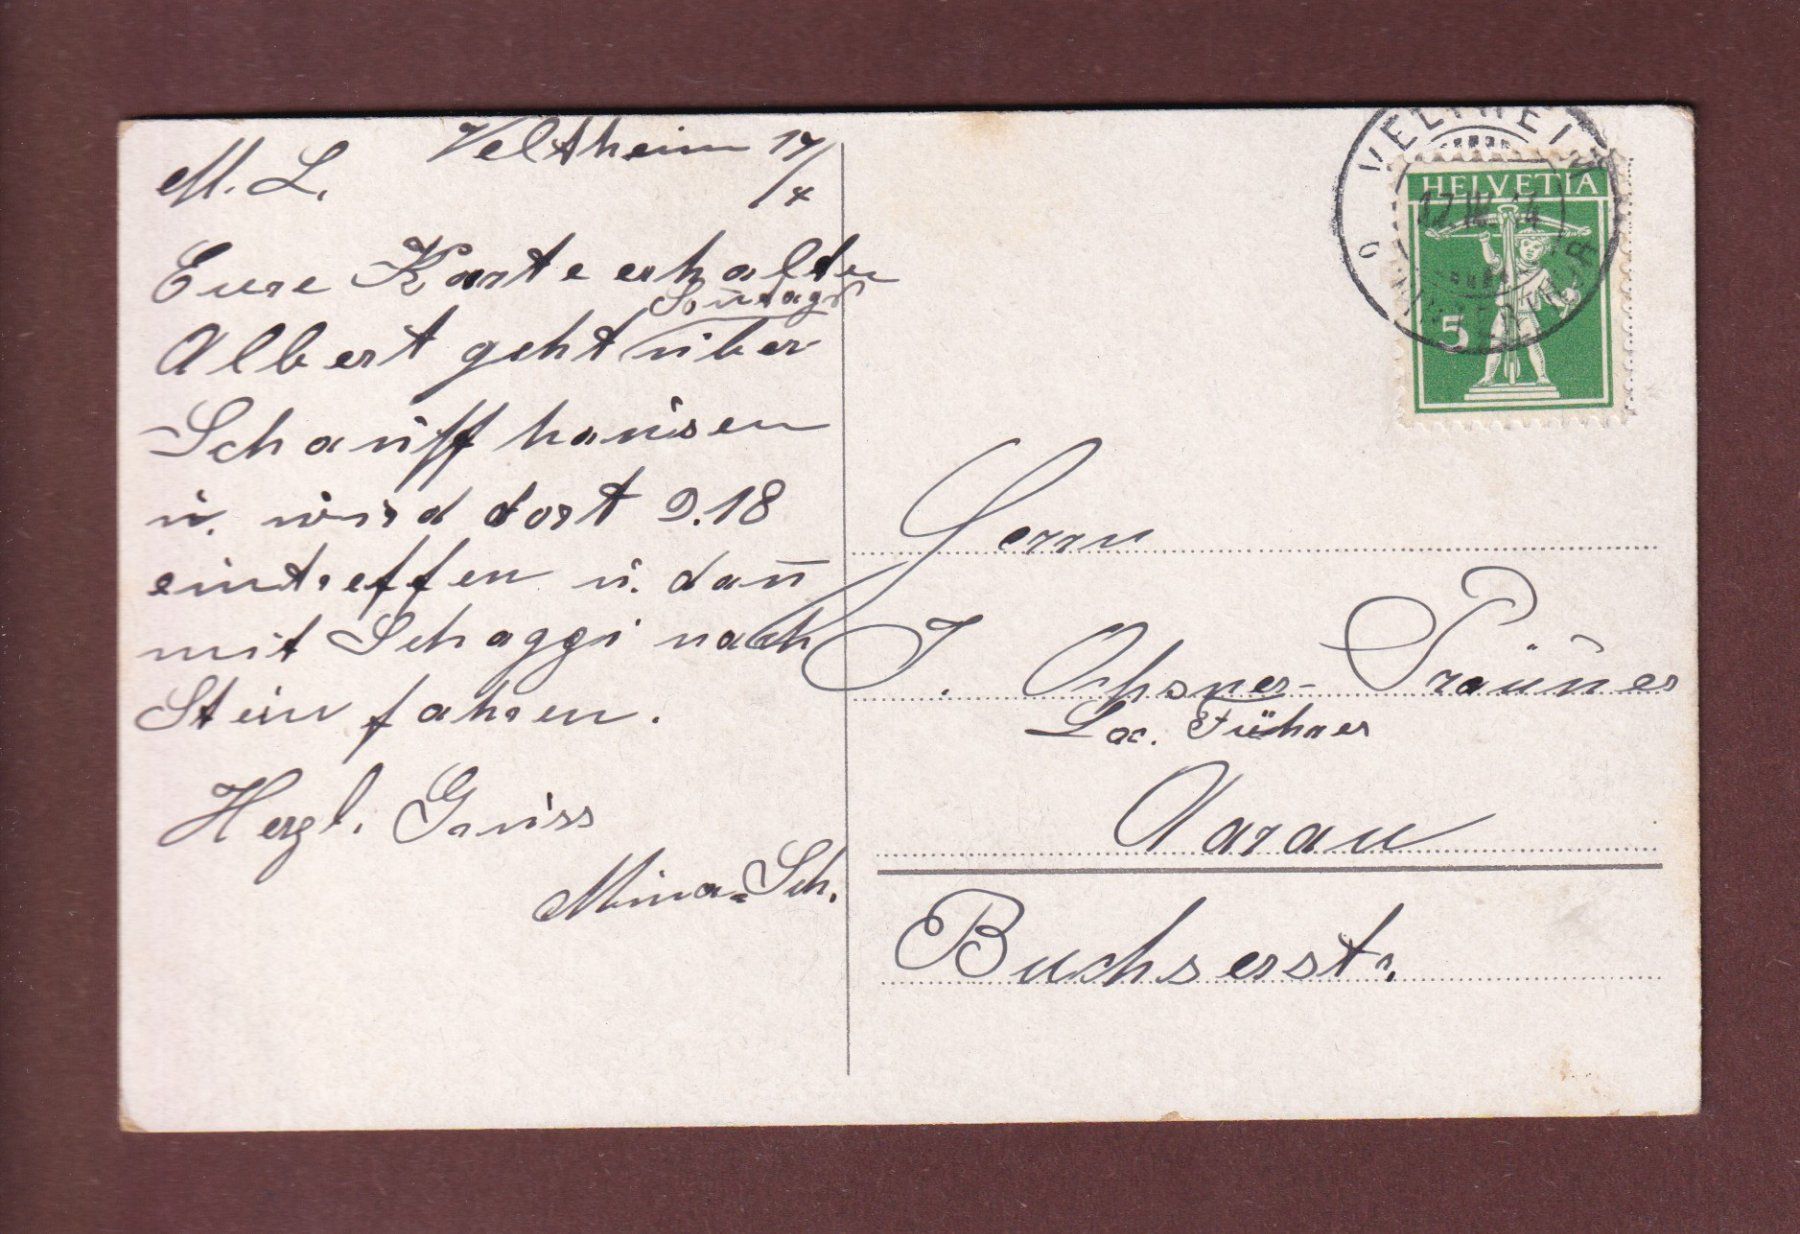 Veltheim 17/4
M. L.
Eure Karte erhalten
Albert geht Sontags über
Schauffhausen
u. wird dort 9.18
eintreffen u. dan̄
mit Schaggi nach
Stein fahren.
Herzl. Gruss
Mina-Sch.
VELTHEIM
17.IV.14
HELVETIA
5
Herrn
J. Ochsner-
Loc. Führer
Aarau
Buchserstr.